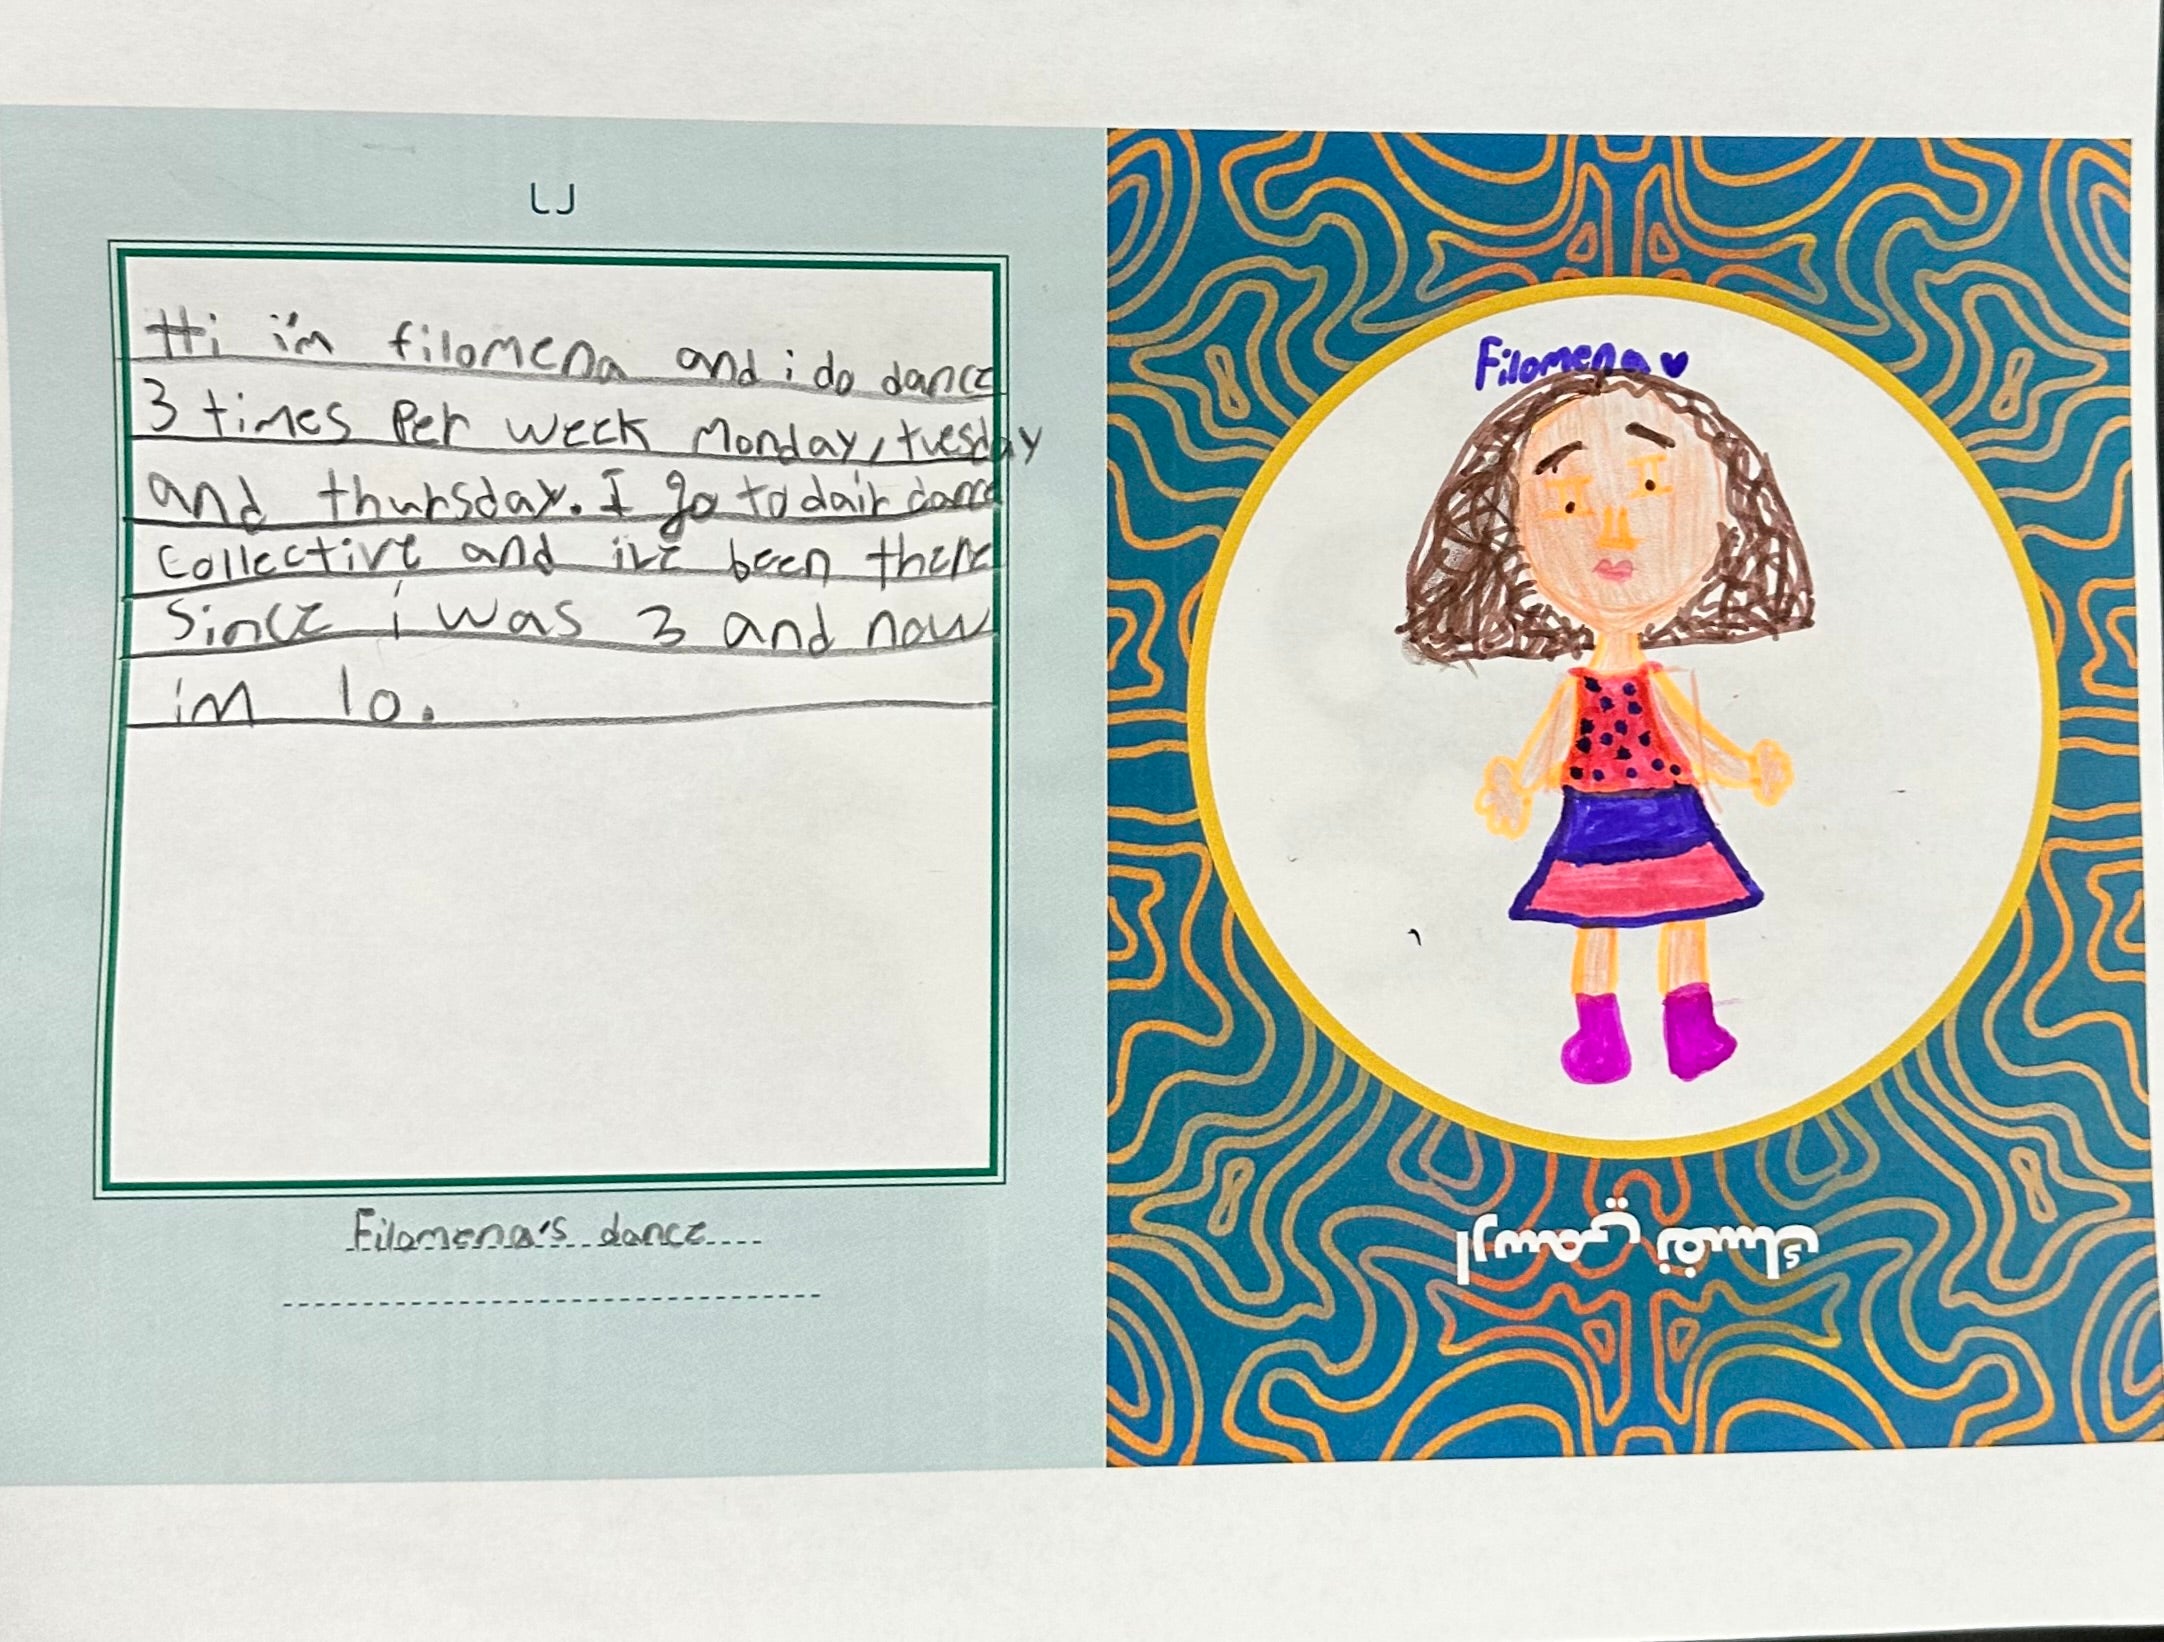 ٢٦
Hi i'm filomena and i do dance
3 times Per week Monday, tuesday
and thursday. I go to dair dance
collective and i've been there
Since i was 3 and now
im 10.
Filomena's dance
Filomena
ارسمي نفسكِ